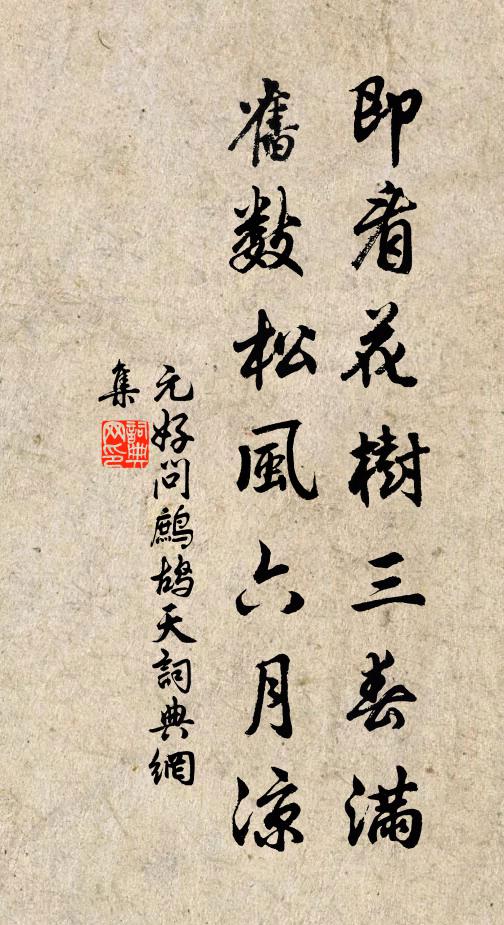 即看花樹三春滿
舊數松風六月涼
元好问鷓鴣天詞典網
集
詞典網印